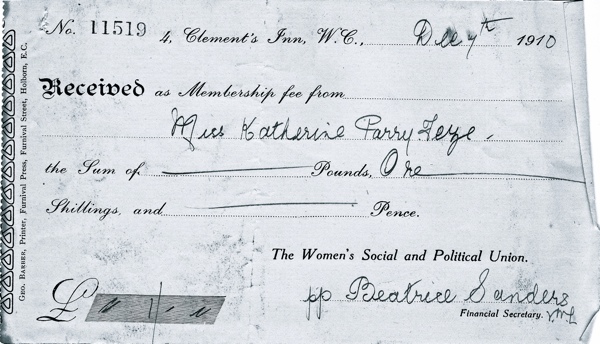 No. 11519 4, Clement's Inn, W.C., Dec 7th 1910
Received as Membership fee from
Miss Katherine Parry
the Sum of Pounds, One
Shillings, and Pence.
The Women's Social and Political Union.
pp Beatrice Sanders
Financial Secretary.
£ 1
Geo. Barber, Printer, Furnival Press, Furnival Street, Holborn, E.C.